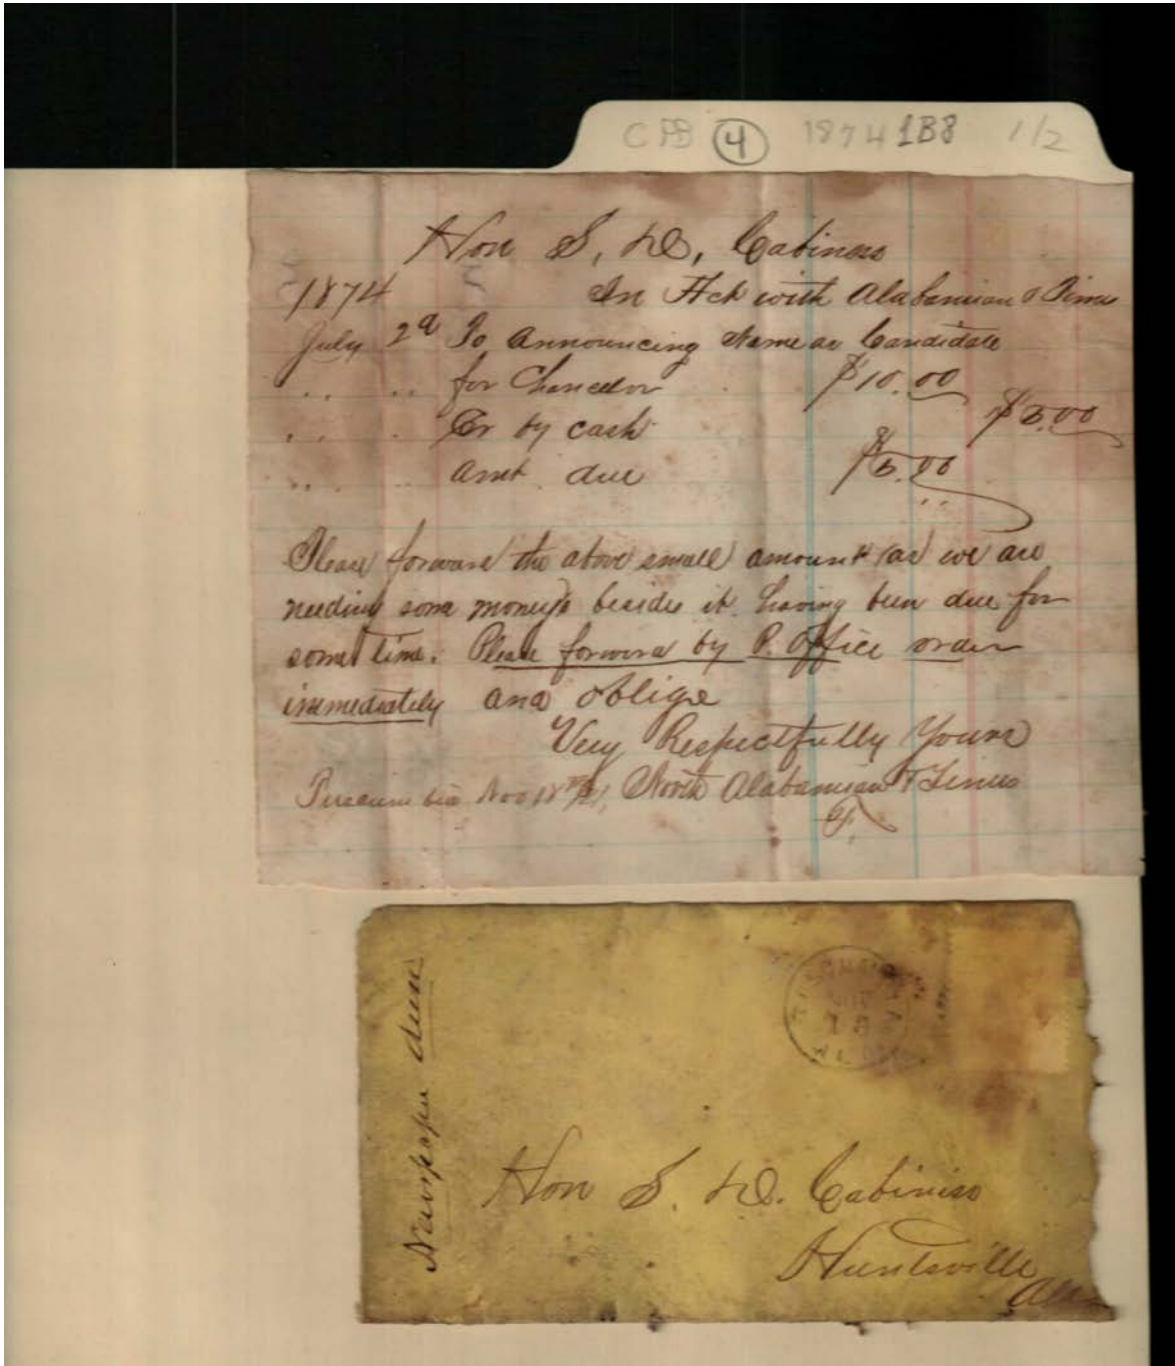 CPB 4 1874 1B8 1/2
Hon S, D, Cabiness
1874 In Act with Alabamian & Times
July 2d To Announcing Name as Candidate
" " for Chancelor $10.00
" " Cr by cash $5.00
" " Amt due $5.00
Please forward the above small amount as we are
needing some money & besides it having been due for
some time. Please forward by P. Office order
immediately and oblige
Very Respectfully Yours
Nov 18th North Alabamian & Times
Newspaper dun
Hon S. D. Cabiniss
Huntsville
Ala